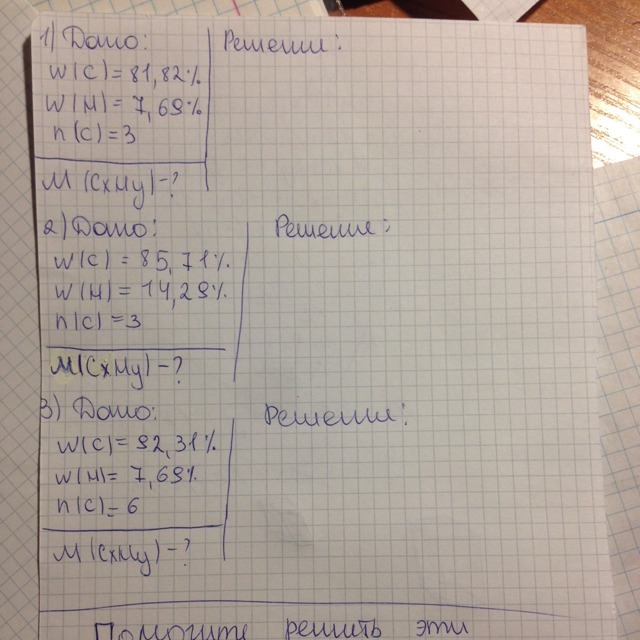 1) Дано: Решение:
W(C) = 81,82%
W(H) = 7,69%
n(C) = 3
M(CxHy) - ?
2) Дано: Решение:
W(C) = 85,71%
W(H) = 14,29%
n(C) = 3
M(CxHy) - ?
3) Дано: Решение:
W(C) = 92,31%
W(H) = 7,69%
n(C) = 6
M(CxHy) - ?
Помогите решить эти